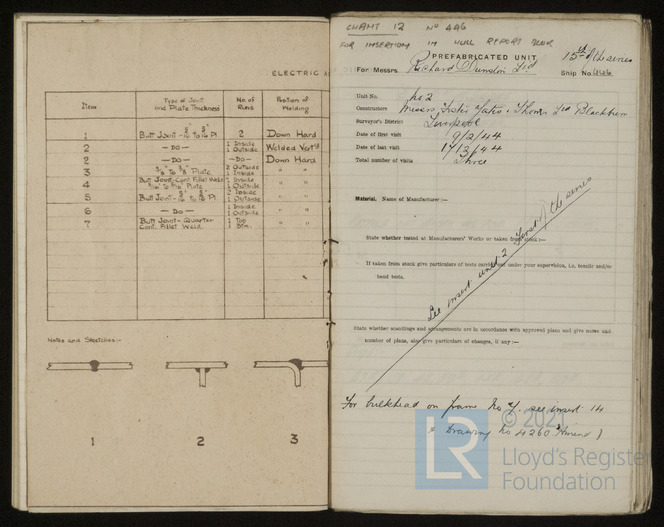 ELECTRIC
Item
Type of Joint and Plate Thickness
No. of Runs
Position of Welding
1
Butt Joint
2
Down Hand
2
— DO —
1 Inside
1 Outside
Welded Vert
2
— DO —
— DO —
Down Hand
3
Plate
2 Outside
1 Inside
" "
4
Butt Joint - Cont. Fillet Weld
Plate
1 Inside
1 Outside
" "
5
Butt Joint
1 Outside
" "
6
— DO —
1 Inside
1 Outside
" "
7
Butt Joint - Quarter
Cont. Fillet Weld.
1 Top
1 Btm.
" "
Notes and Sketches:-
1
2
3
CHAMT 12 No 496
FOR INSERTION IN HULL REPORT
PREFABRICATED UNIT
15th of the series
For Messrs. Richard Dunston Ltd
Ship No.
Unit No. No 2
Constructors Messrs Foster Yates & Thom Ltd Blackburn
Surveyor's District Liverpool
Date of first visit 9/2/44
Date of last visit 17/3/44
Total number of visits Three
Material. Name of Manufacturer :—
State whether tested at Manufacturers' Works or taken from stock :—
If taken from stock give particulars of tests carried out under your supervision, i.e. tensile and/or
bend tests.
See insert unit 2 first of the series
State whether scantlings and arrangements are in accordance with approved plans and give name and
number of plans, also give particulars of changes, if any :—
For bulkhead on frame No 7. see insert 14
& Drawing No 4260 Amend )
© 2021
LR
Lloyd's Register
Foundation